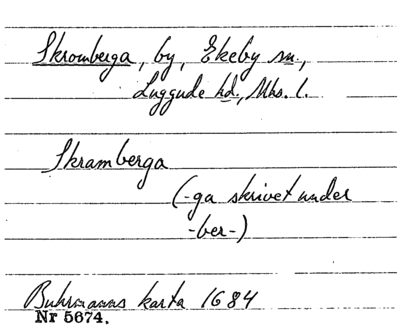 Skromberga, by, Ekeby sn.,
Luggude hd., Mhs. l.
Skramberga
(-ga skrivet under
-ber-)
Buhrmanns karta 1684
Nr 5674.